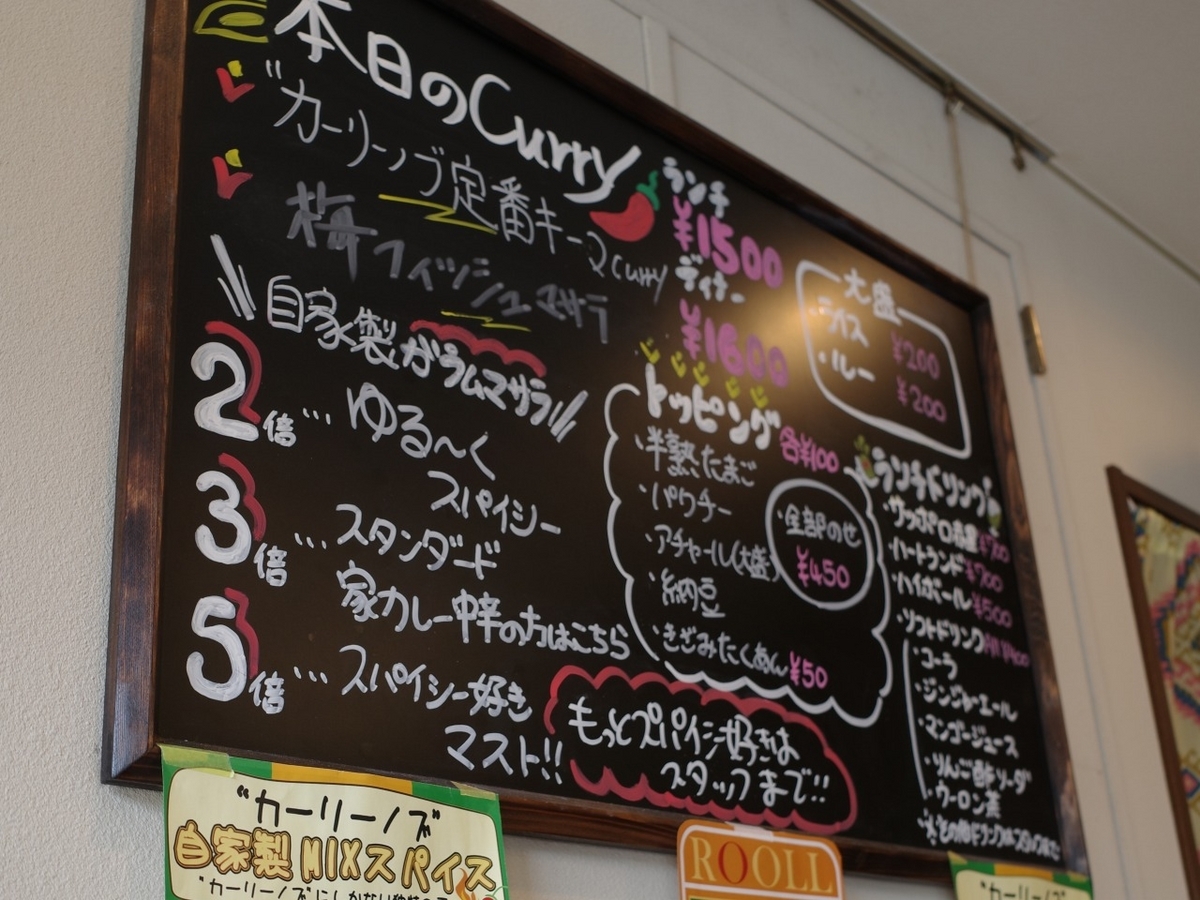 本日のCurry
"カーリーノブ定番キーマcurry
梅フィッシュマサラ
ランチ
¥1500
ディナー
¥1600
大盛
・ライス ¥200
・ルー ¥200
自家製ガラムマサラ
2倍…ゆる〜く
スパイシー
3倍…スタンダード
家カレー中辛の方はこちら
5倍…スパイシー好き
マスト!!
トッピング 各¥100
・半熟たまご
・パクチー
・アチャール(大盛)
・納豆
・きざみたくあん ¥50
・全部のせ
¥450
もっとスパイシー好きは
スタッフまで!!
ランチドリンク
・サッポロ ¥700
・ハートランド ¥700
・ハイボール ¥500
・ソフトドリンク ¥400
・コーラ
・ジンジャーエール
・マンゴージュース
・りんご酢ソーダ
・ウーロン茶
"カーリーノブ"
自家製MIXスパイス
"カーリーノブ"にしかない
ROOLL
"カーリーノブ